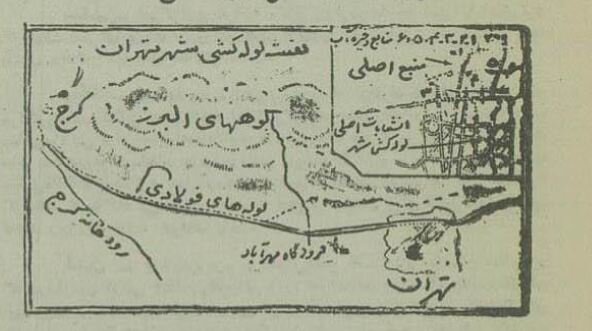 نقشه لوله کشی شهر تهران
۱،۲،۳،۴،۵،۶ منابع ذخیره آب
منبع اصلی
کوههای البرز
کرج
انشعابات اصلی
لوله کشی شهر
لوله های فولادی
رودخانه کرج
فرودگاه مهرآباد
تهران